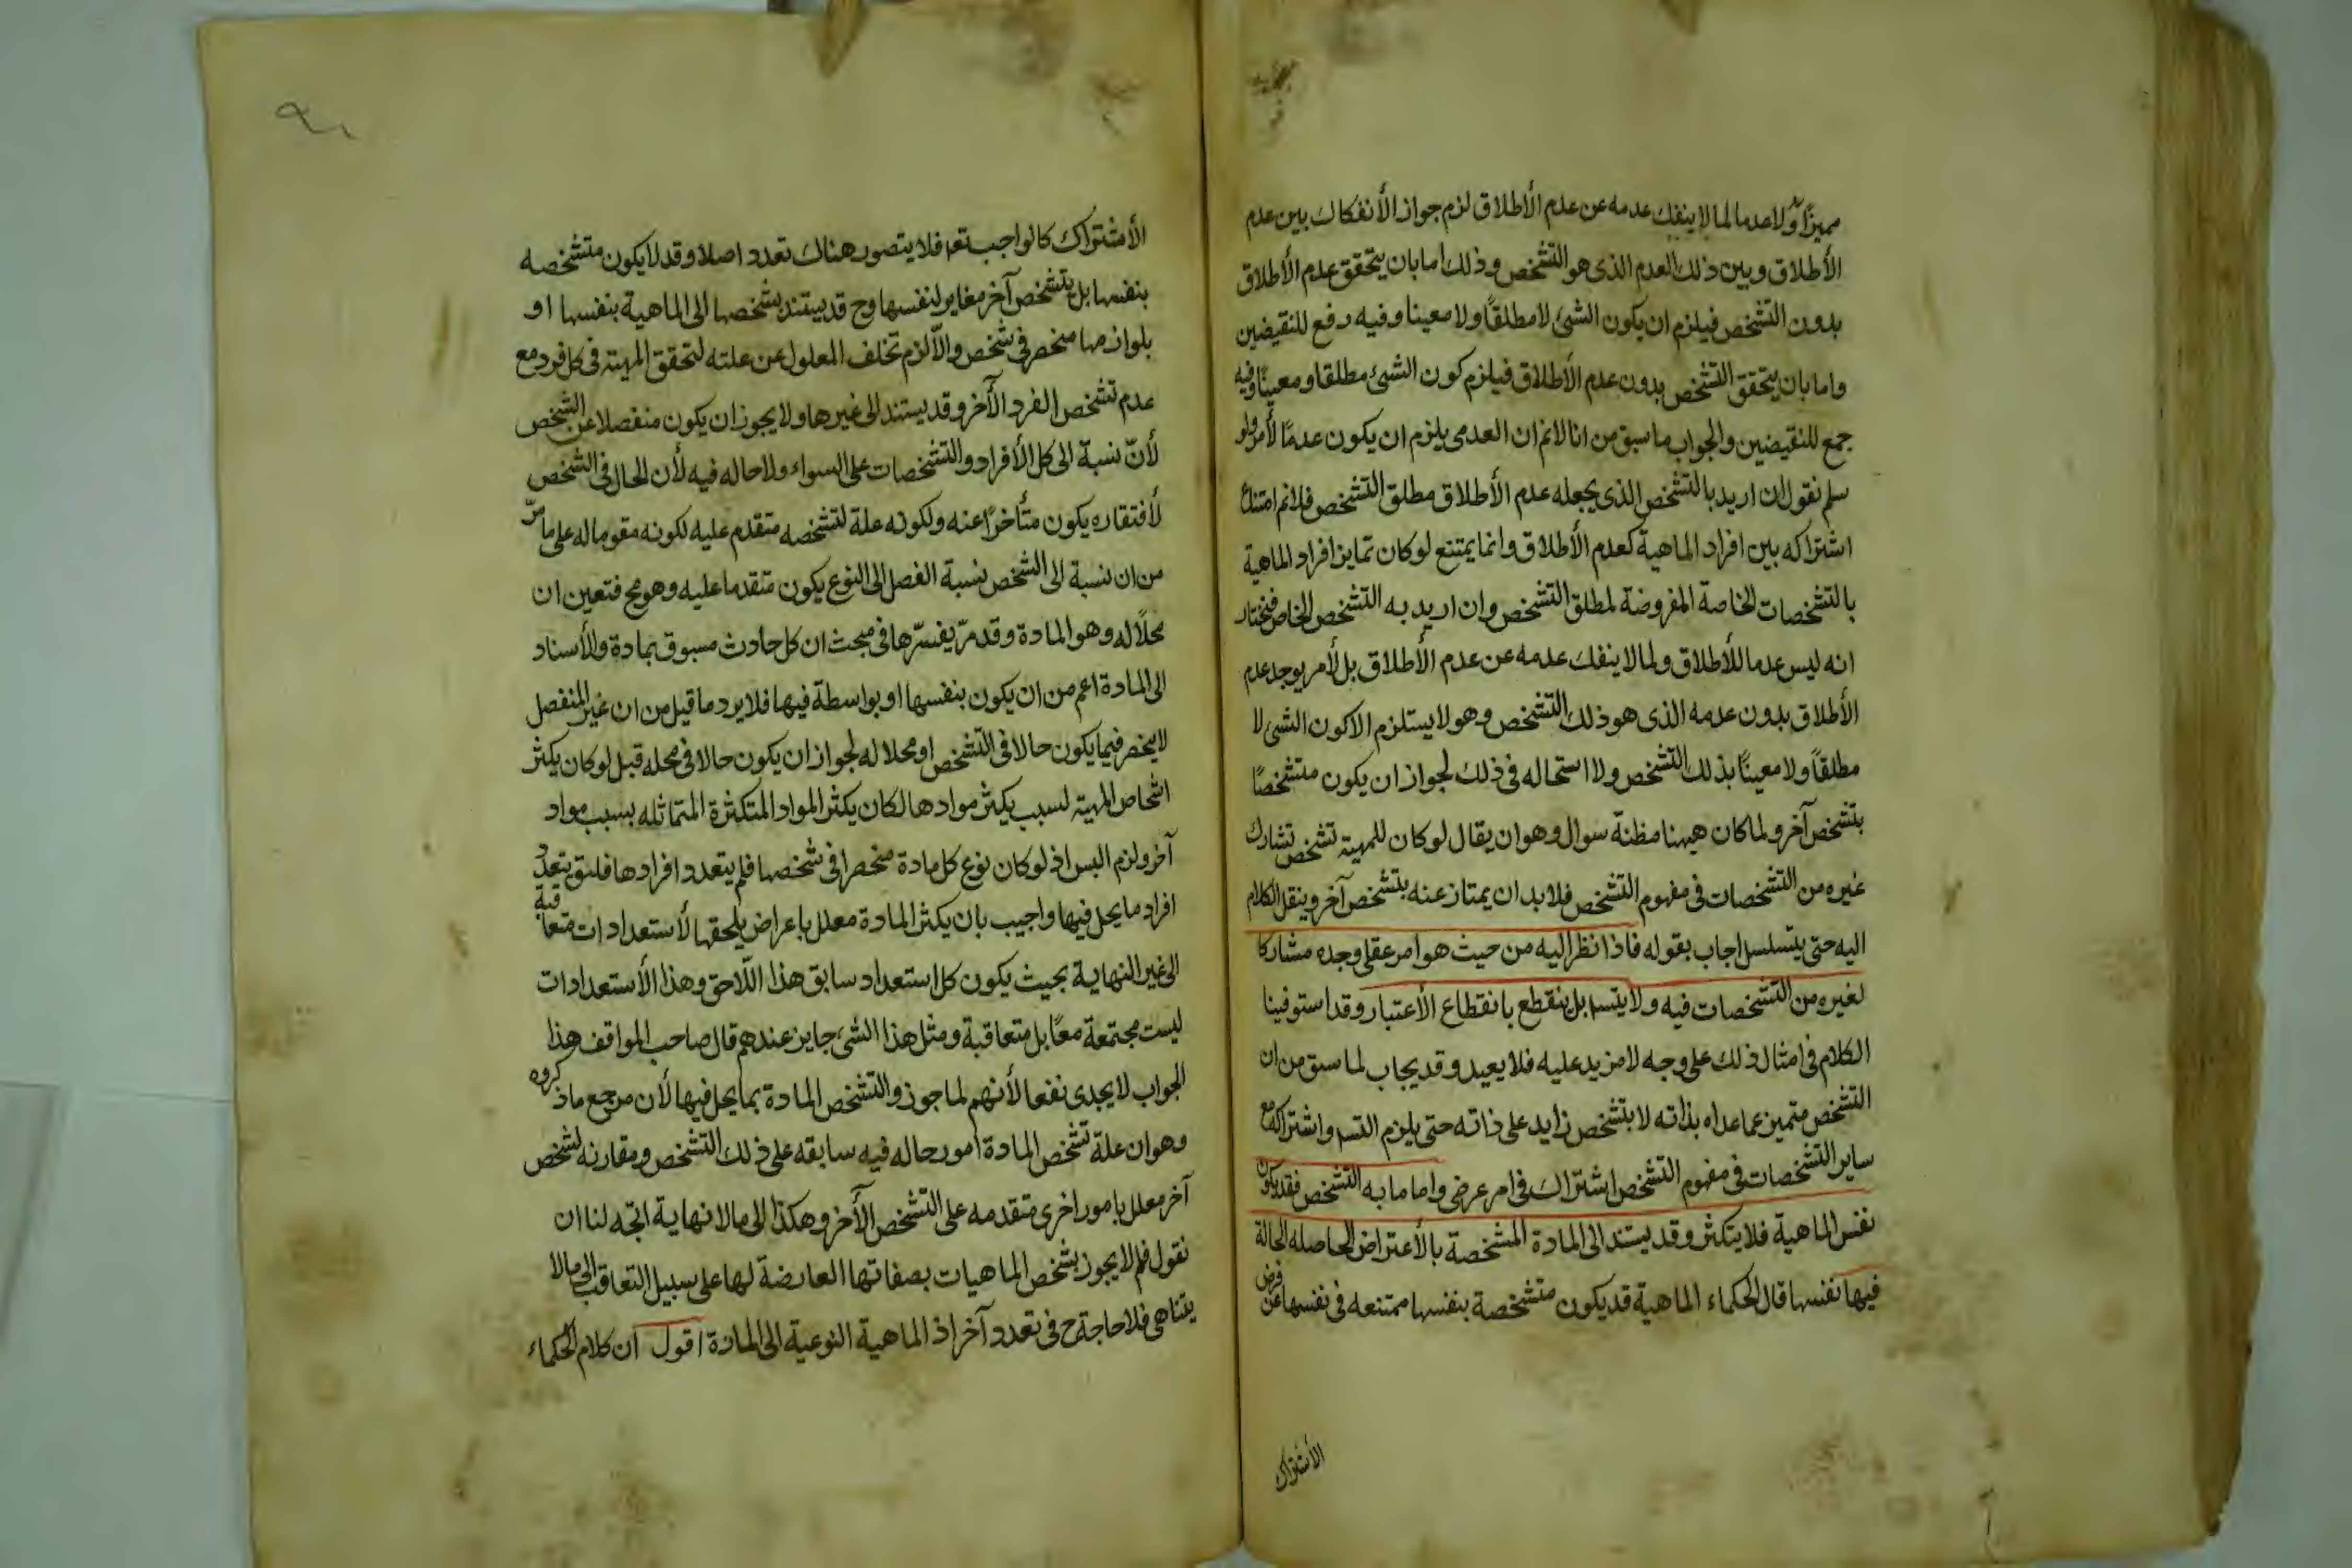 مميزا ولا عدما لما لا ينفك عدمه عن عدم الأطلاق لزم جواز الأنفكاك بين عدم
الأطلاق وبين ذلك العدم الذى هو التشخص وذلك اما بان يتحقق عدم الأطلاق
بدون التشخص فيلزم ان يكون الشئ لا مطلقاً ولا معينا وفيه رفع للنقيضين
واما بان يتحقق التشخص بدون عدم الأطلاق فيلزم كون الشئ مطلقا ومعيناً وفيه
جمع للنقيضين والجواب ما سبق من انا لانم ان العدمى يلزم ان يكون عدمًا لأمر ولو
سلم نقول ان اريد بالتشخص الذى يجعله عدم الأطلاق مطلق التشخص فلانم امتناع
اشتراكه بين افراد الماهية كعدم الأطلاق وانما يمتنع لو كان تمايز افراد الماهية
بالتشخصات الخاصة المفروضة لمطلق التشخص وان اريد به التشخص الخاص فنختار
انه ليس عدما للأطلاق ولما لا ينفك عدمه عن عدم الأطلاق بل لأمر يوجد عدم
الأطلاق بدون عدمه الذى هو ذلك التشخص وهو لا يستلزم الا كون الشئ لا
مطلقاً ولا معيناً بذلك التشخص ولا استحاله فى ذلك لجواز ان يكون متشخصًا
بتشخص آخر ولما كان هيهنا مظنة سوال وهو ان يقال لو كان للمهية تشخص تشارك
غيره من التشخصات فى مفهوم التشخص فلا بد ان يمتاز عنه بتشخص آخر وينقل الكلام
اليه حتى يتسلسل اجاب بقوله فاذا نظر اليه من حيث هو امر عقلى وجده مشاركا
لغيره من التشخصات فيه ولا يتسم بل ينقطع بانقطاع الأعتبار وقد استوفينا
الكلام فى امثال ذلك على وجه لا مزيد عليه فلا يعيد وقد يجاب لما سبق من ان
التشخص متميز عما عداه بذاته لا بتشخص زايد على ذاته حتى يلزم التسم واشتراكه مع
ساير التشخصات فى مفهوم التشخص اشتراك فى امر عرضى واما ما به التشخص فقد يكون
نفس الماهية فلا يتكثر وقد يستند الى المادة المشخصة بالأعتراض الحاصله الحالة
فيها نفسها قال الحكماء الماهية قد يكون متشخصة بنفسها ممتنعه فى نفسها عن فرض
الأشتراك
الأشتراك كالواجب تعم فلا يتصور هناك تعدد اصلا وقد لا يكون متشخصه
بنفسها بل بتشخص آخر مغاير لنفسها وح قد يستند تشخصها الى الماهية بنفسها او
بلوازمها منحصر فى شخص والّا لزم تخلف المعلول عن علته لتحقق المهية فى كل فرد مع
عدم تشخص الفرد الآخر وقد يستند الى غيرها ولا يجوز ان يكون منفصلا عن الشخص
لأنّ نسبة الى كل الأفراد والتشخصات على السواء ولا حاله فيه لأن الحال فى الشخص
لأفتقاره يكون متأخرًا عنه ولكونه علة لتشخصه متقدم عليه لكونه مقوما له على ما مرّ
من ان نسبة الى الشخص نسبة الفصل الى النوع يكون متقدما عليه وهو مح فتعين ان
محلًا له وهو المادة وقد مرّ يفسرّها فى مبحث ان كل حادث مسبوق بمادة والأسناد
الى المادة اعم من ان يكون بنفسها او بواسطة فيها فلا يرد ما قيل من ان غير المنفصل
لا ينحصر فيما يكون حالا فى التشخص او محلا له لجواز ان يكون حالا فى محله قبل لو كان يكثر
اشخاص المهية لسبب يكثر موادها لكان يكثر المواد المتكثرة المتماثله بسبب مواد
آخر ولزم البس اذ لو كان نوع كل مادة منحصرا فى شخصها فلم يتعدد افرادها فلتق بتعدد
افراد ما يحل فيها واجيب بان يكثر المادة معلل باعراض يلحقها لأستعدادات متعاقبة
الى غير النهاية بحيث يكون كل استعداد سابق هذا اللّاحق وهذا الأستعدادات
ليست مجتمعة معًا بل متعاقبة ومثل هذا الشئ جايز عندهم قال صاحب المواقف هذا
الجواب لا يجدى نفعا لأنهم لما جوزوا التشخص المادة بما يحل فيها لأن مرجع ما ذكروه
وهو ان علة تشخص المادة امور حاله فيه سابقه على ذلك التشخص ومقارنه لشخص
آخر معلل بامور اخرى متقدمه على التشخص الأخر وهكذا الى ما لا نهاية اتجه لنا ان
نقول فلم لا يجوز تشخص الماهيات بصفاتها العارضة لها على سبيل التعاقب الى ما لا
يتناهى فلا حاجة ح فى تعدد آخر اذ الماهية النوعية الى المادة اقول ان كلام الحكماء